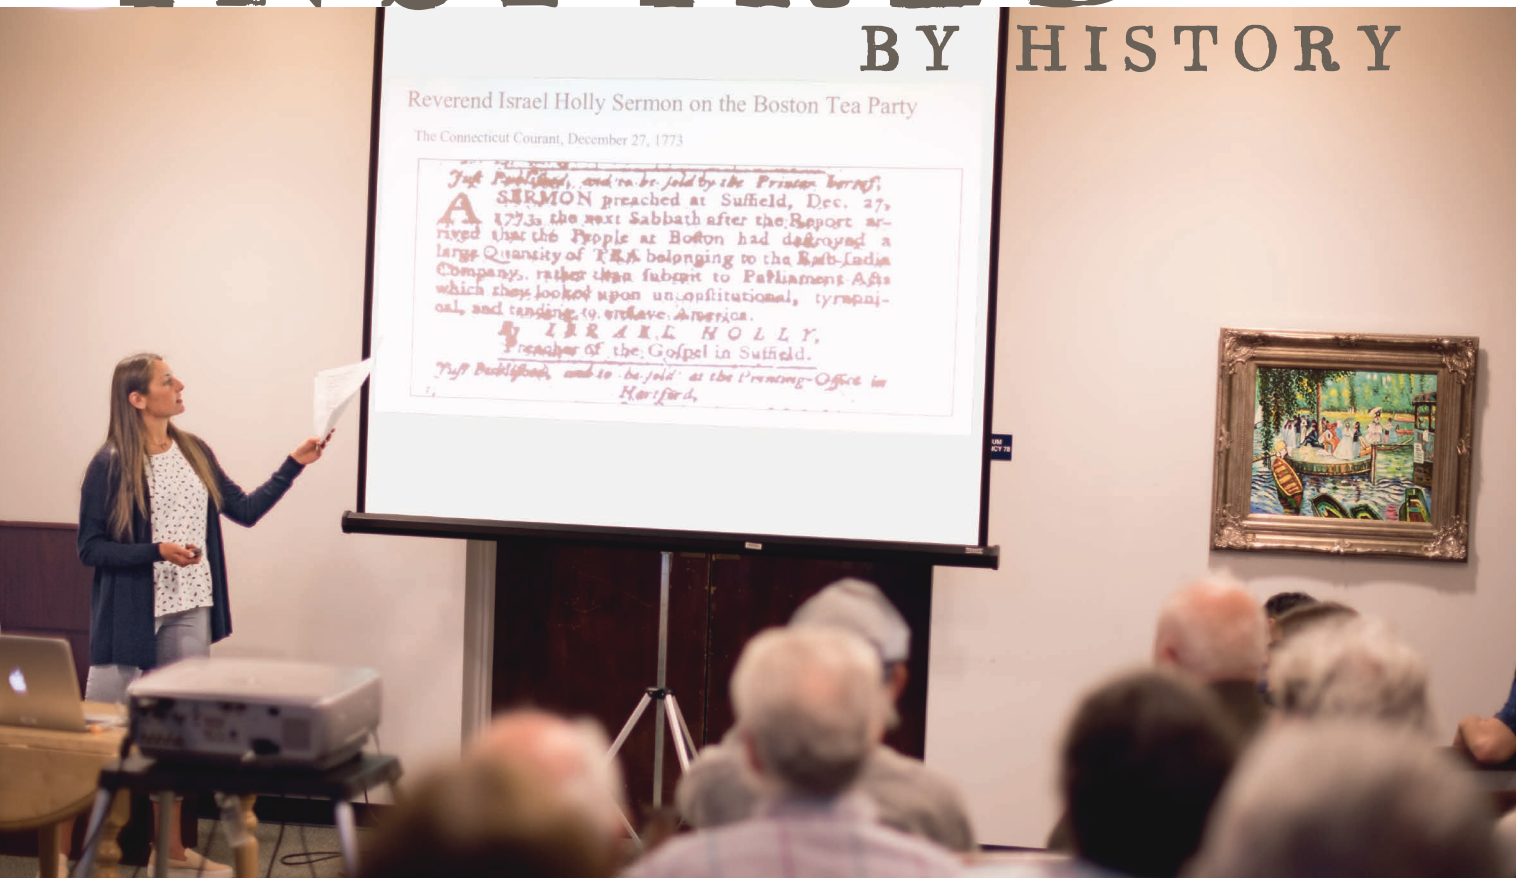 BY HISTORY
Reverend Israel Holly Sermon on the Boston Tea Party
The Connecticut Courant, December 27, 1773
Juſt Publiſhed, and to be ſold by the Printer hereof,
A SERMON preached at Suffield, Dec. 27,
1773, the next Sabbath after the Report ar-
rived that the People at Boſton had deſtroyed a
large Quantity of TEA belonging to the Eaſt-India
Company, rather than ſubmit to Parliament Acts
which they looked upon unconſtitutional, tyranni-
cal, and tending to enſlave America.
By ISRAEL HOLLY,
Preacher of the Goſpel in Suffield.
Juſt Publiſhed, and to be ſold at the Printing-Office in
Hartford,